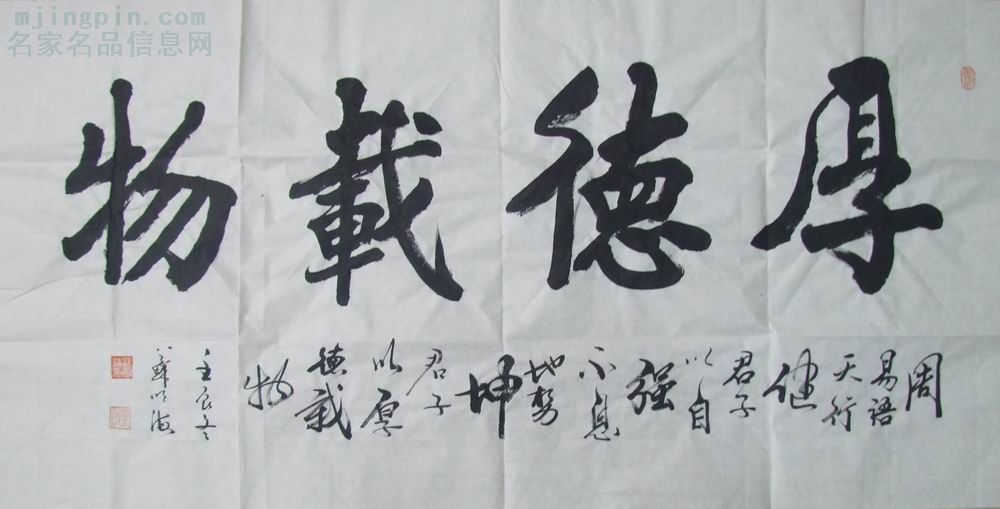 mjingpin.com
名家名品信息网
厚德載物
周
易语
天行
健
君子
以自
强
不息
地势
坤
君子
以厚
德载
物
壬辰冬